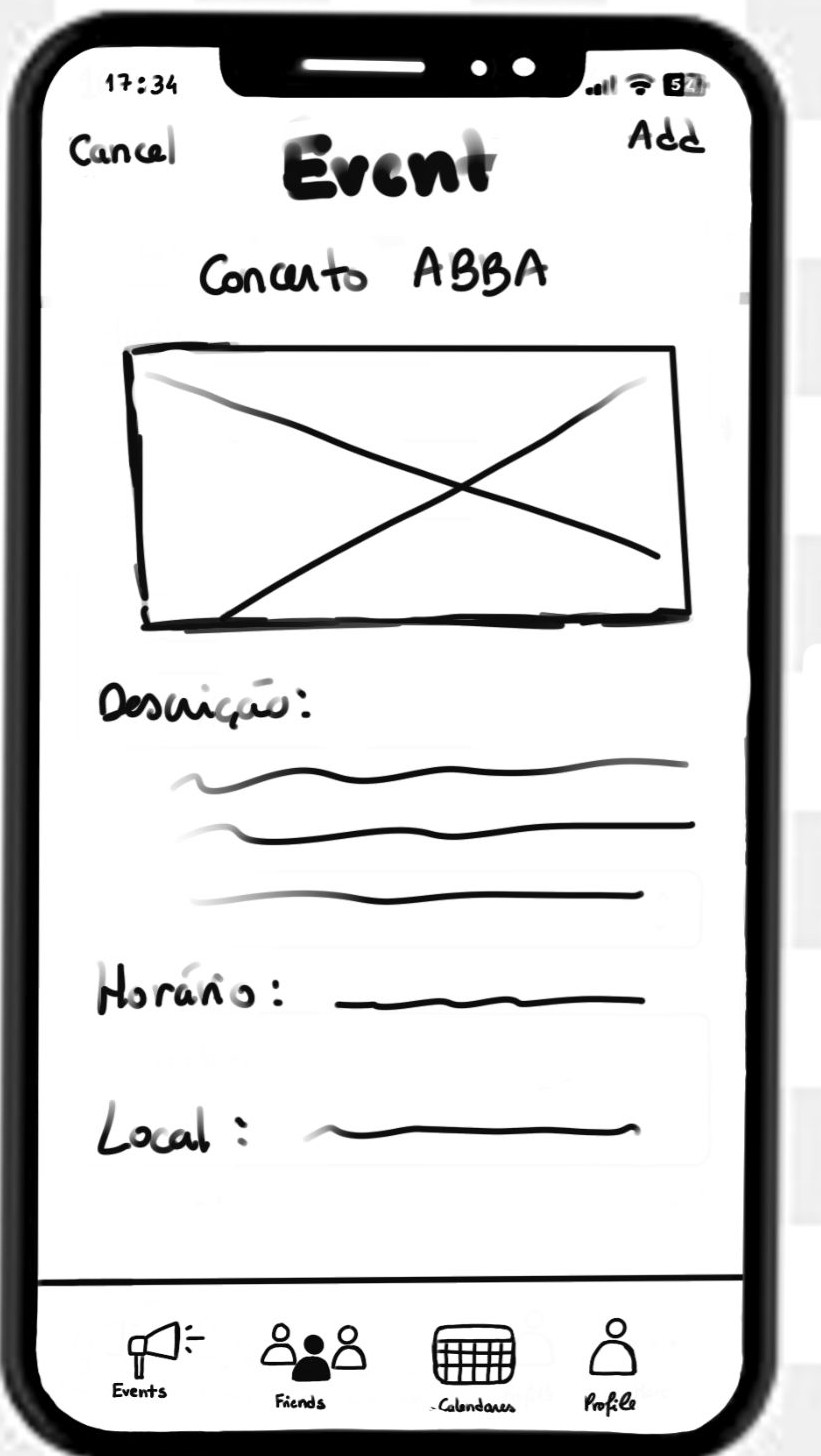 17:34 54
Cancel Event Add
Concerto ABBA
Descrição:
Horário:
Local:
Events Friends Calendares Profile